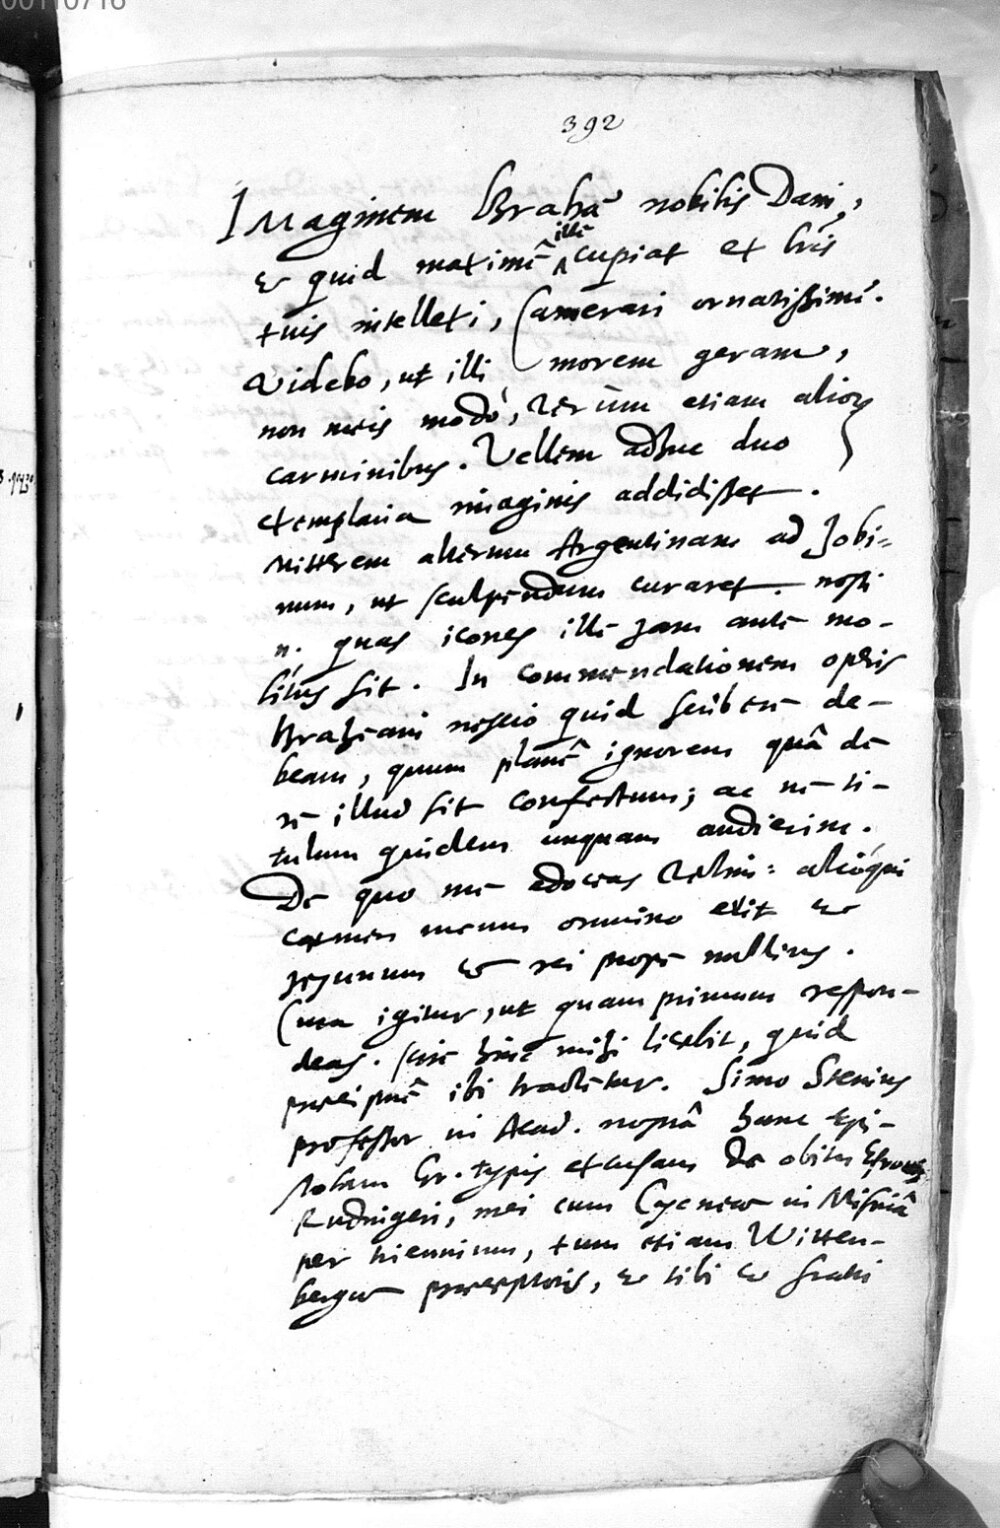 00110716
392
IMaginem Brahæ nobilis Dani,
& quid maximè ille cupiat ex lris
tuis intellexi, Camerari ornatissime.
Videbo, ut illi morem geram,
non meis modò, verùm etiam alioꝝ
carminibus. Vellem adhuc duo
exemplaria imaginis addidisset.
Mitterem alterum Argentinam ad Jobi-
num, ut sculpendum curaret. nosti
n. quas icones ille jam antè mo-
litus sit. In commendationem operis
Braheani nescio quid scribere de-
beam, quum planè ignorem quâ de
re illud sit confectum; ac ne ti-
tulum quidem unquam audierim.
De quo me edoceas velim: alioqui
carmen meum omnino erit &
jejunum & rei propè nullius.
Cura igitur, ut quam primum respon-
deas. scire hinc mihi licebit, quid
præcipuè ibi tractetur. Simo Stenius
professor in Acad. nostrâ hanc Epi-
stolam Gr. typis excusam de obitu Esromi
Rudingeri, mei cum Cycneæ in Misniâ
per triennium, tum etiam Witten-
bergæ præceptoris, & tibi & fratri